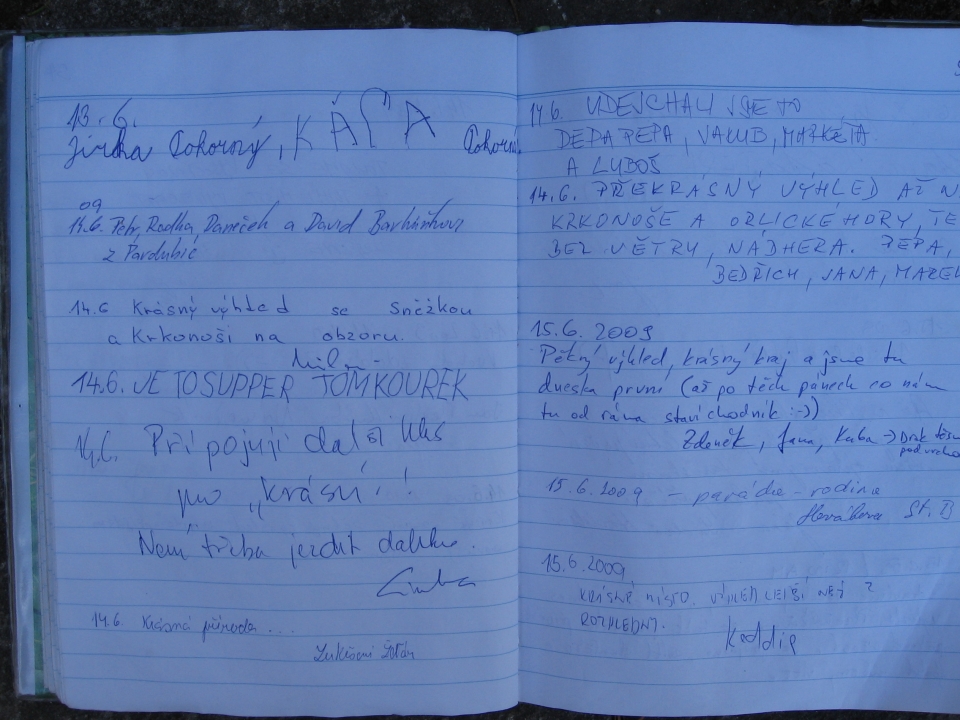 13.6.
Jirka Pokorný, KÁČA Pokorná
09
14.6. Petr, Radka, Daneček a David
z Pardubic
14.6 Krásný výhled se Sněžkou
a Krkonoši na obzoru.
14.6. JE TO SUPPER TOM KOUREK
14.6. Připojuji další hlas
pro „krásu"!
Není třeba jezdit daleko.
14.6. Krásná příroda...
14.6. UDEJCHALI JSME TO
DĚDA PEPA, JAKUB, MARKÉTA
A LUBOŠ
14.6. PŘEKRÁSNÝ VÝHLED AŽ N
KRKONOŠE A ORLICKÉ HORY, TE
BEZ VĚTRY, NÁDHERA. PEPA,
BEDŘICH, JANA, MAREK
15.6. 2009
Pěkný výhled, krásný kraj a jsme tu
dneska první (až po těch pánech co nám
tu od rána staví chodník :-))
Zdeněk, Jana, Kuba → Drak
pod vrcho
15.6.2009 – paráda – rodina
15.6.2009
KRÁSNÉ MÍSTO. VÝHLED LEPŠÍ NEŽ Z
ROZHLEDNY.